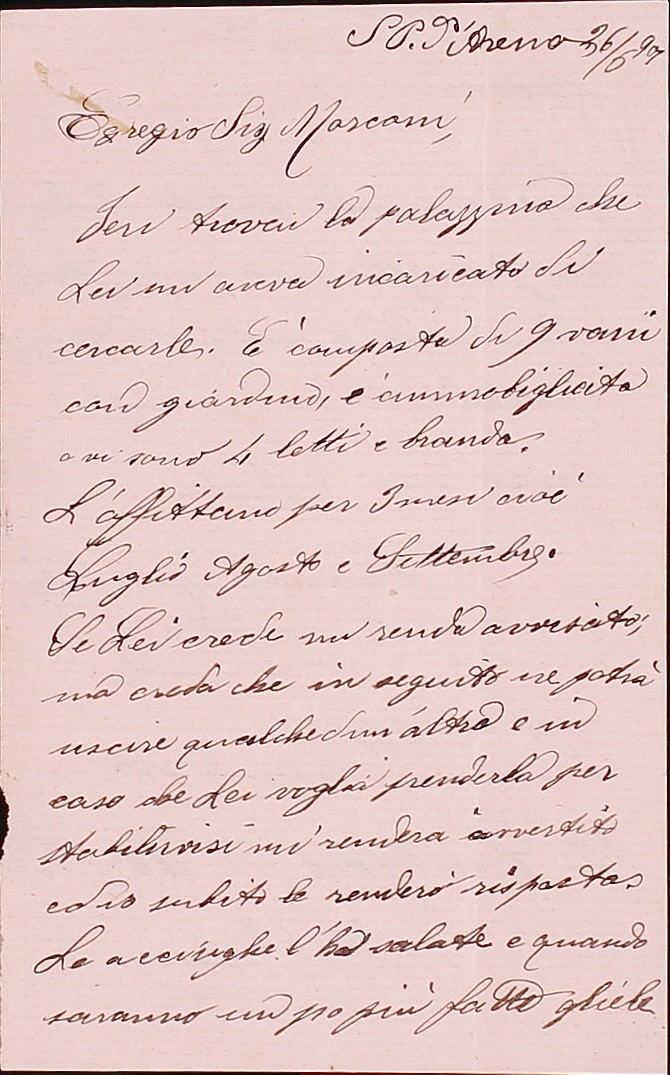 S P. d'Arena 26/6 97
Egregio Sig Mosconi,
Jeri trovai la palazzina che
Lei mi aveva incaricato di
cercarle. È composta di 9 vani
con giardino, è ammobigliata
e vi sono 4 letti e branda.
L'affittano per 3 mesi cioè
Luglio Agosto e Settembre.
Se Lei crede mi renda avvisato;
ma creda che in seguito ne potrà
uscire qualchedun'altra e in
caso che Lei voglia prenderla per
stabilirvisi mi renderà avvertito
ed io subito le renderò risposta.
Le acciughe l'ho salate e quando
saranno un po più fatte gliele